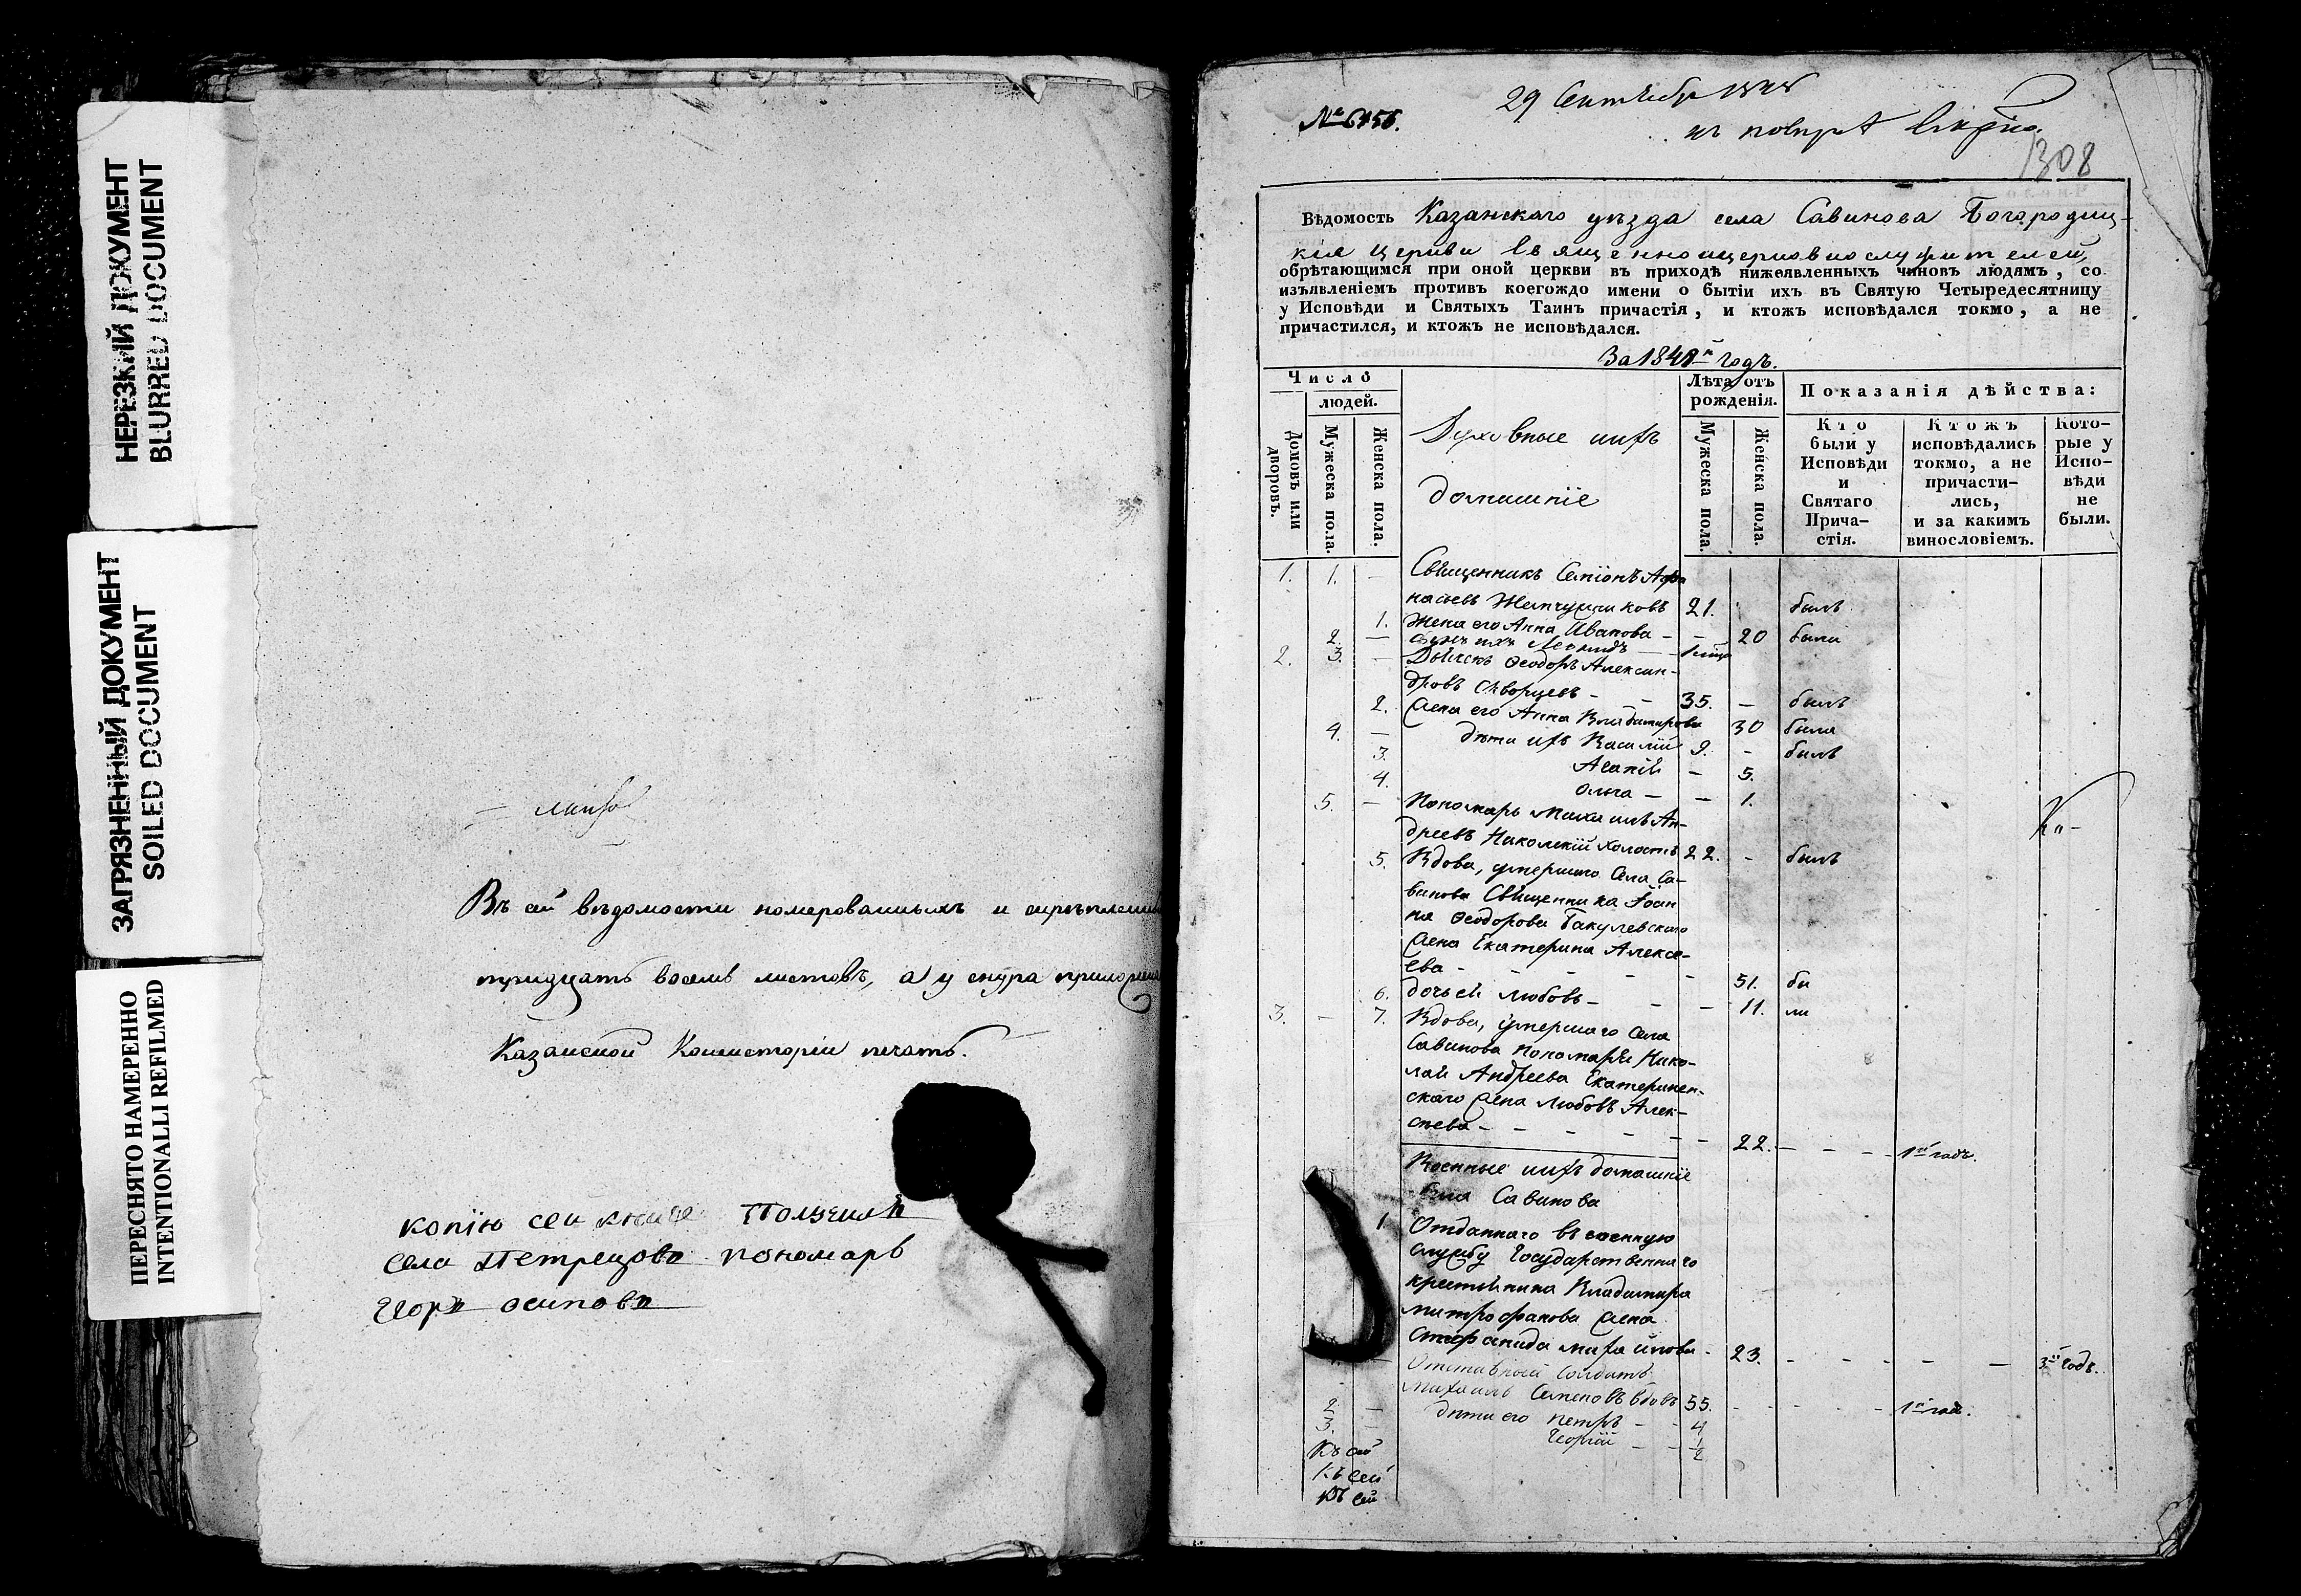 НЕРЕЗКИЙ ДОКУМЕНТ
BLURRED DOCUMENT
ЗАГРЯЗНЕННЫЙ ДОКУМЕНТ
SOILED DOCUMENT
ПЕРЕСНЯТО НАМЕРЕННО
INTENTIONALLI REFILMED
Въ сей вѣдомости номерованныхъ и скрѣпленны
тридцать восемь листовъ, а у снура приложена
Казанской Консисторіи печать.
копїю сей книги Получилъ
села Петрецово пономарь
Егоръ осиповъ
29 Сентября
№ 6456.
1308
Вѣдомость Казанскаго уѣзда села Савинова Богородиц-
кія церкви Священноицерковнослужителей,
обрѣтающимся при оной церкви въ приходѣ нижеявленныхъ чиновъ людямъ, со
изъявленіемъ противъ коегождо имени о бытіи ихъ въ Святую Четыредесятницу
у Исповѣди и Святыхъ Таинъ причастія, и ктожъ исповѣдался токмо, а не
причастился, и ктожъ не исповѣдался.
За 1848й годъ.
Число
людей.
Домовъ или дворовъ.
Мужеска пола.
Женска пола.
Духовные ихъ
домашніе
Лѣта отъ рожденія.
Мужеска пола.
Женска пола.
Показанія дѣйства:
Кто были у Исповѣди и Святаго Прича- стія.
Ктожъ исповѣдались токмо, а не причасти- лись, и за какимъ винословіемъ.
Кото- рые у Испо- вѣди не были.
1. 1. – Священникъ Семіонъ Афа
насьевъ Жемчужниковъ 21. былъ
1. Жена его Анна Иванова – – 20 была
2. – сынъ ихъ Леонидъ
2. 3. – Дьячекъ Ѳеодоръ Алексан-
дровъ Скворцевъ – – 35. – былъ
2. Жена его Анна Владимирова 30 была
4. – дѣти ихъ Василій 9. – былъ
3. Агапія – 5.
4. Ольга – – 1.
5. – Пономарь Михаилъ Ан-
дреевъ Николскій холостъ 22. – былъ
5. Вдова, умершаго Села Са-
винова Священника Іоан
на Ѳеодорова Бакулевскаго
Жена Екатерина Алексе-
ева – – – – – – 51. бы
6. дочь ей Любовь – – – 11. ли
3. – 7. Вдова, умершаго Села
Савинова пономаря Нико-
лая Андреева Екатеринен-
скаго Жена Любовь Алек-
сѣева – – – – – – 22. – – – – 1й годъ.
Военные ихъ домашніе
Села Савинова
1. Отданнаго въ военную
службу Государственнаго
крестьянина Владимира
митрофанова Жена
Стефанида – 23. – – – – – 3й годъ.
– Отставный Солдатъ
Михаилъ Семеновъ вдовъ 55. – – – – 1й годъ.
2 – дѣти его Петръ – – 4
3. – Георгій – – 1/2
Къ сей
Къ сей
Къ сей